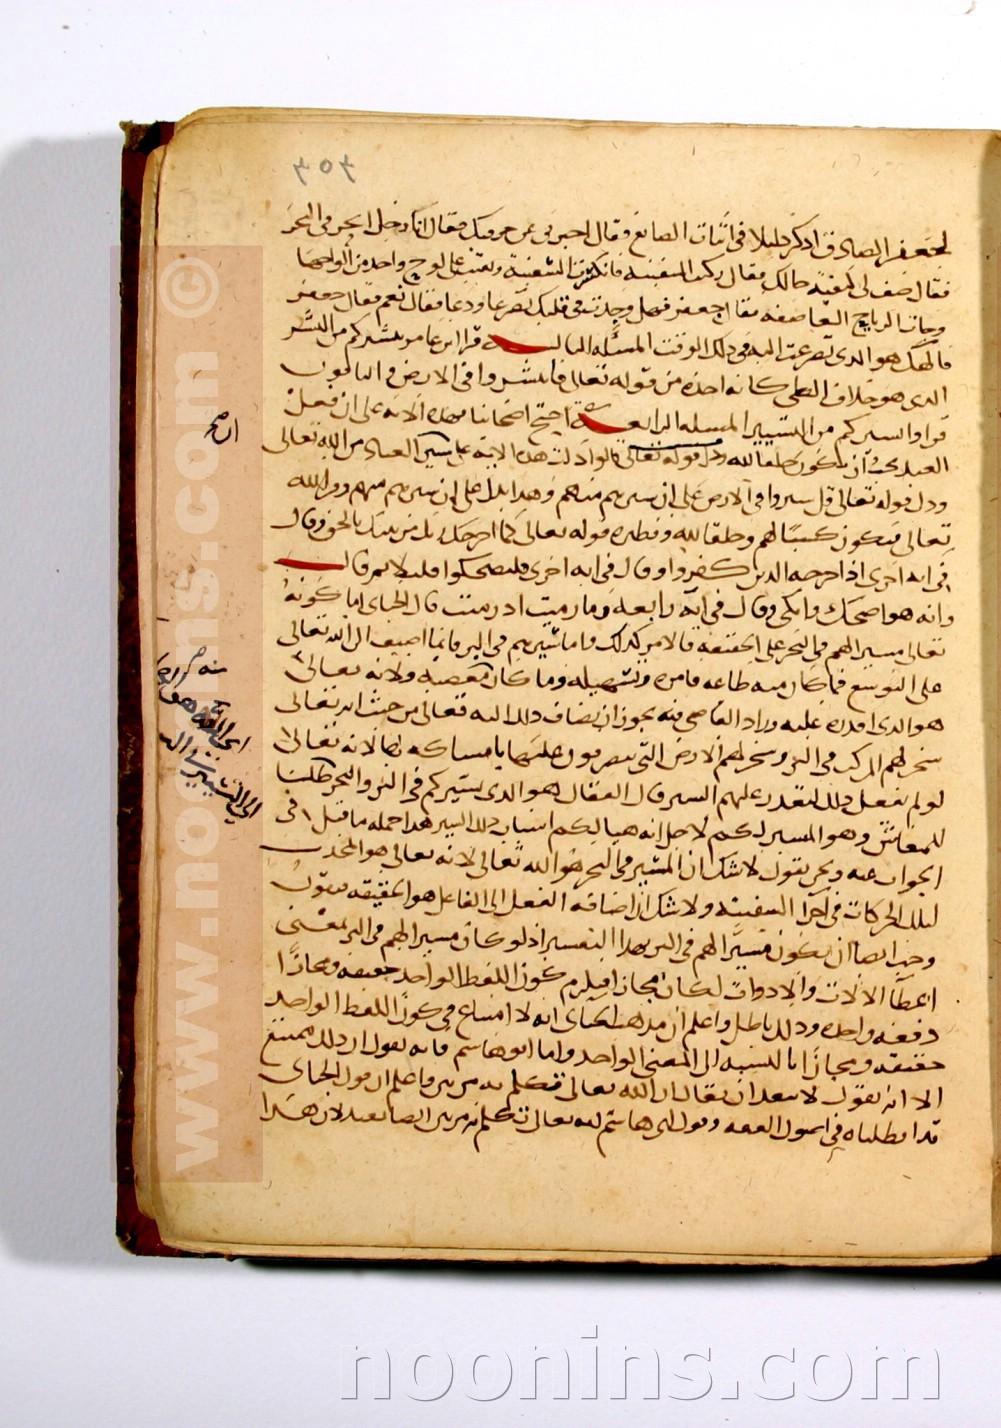 ٣٥٣
لجعفر الصادق اذكر دليلا فى اثبات الصانع فقال اخبرنى عن حرفتك فقال انا رجل اتجر فى البحر
فقال صف لى كيفية حالك فقال ركبت السفينة فانكسرت السفينة وبقيت على لوح واحد من ألواحها
وجات الرياح العاصفه فقال جعفر فهل وجدت فى قلبك تضرعا ودعا فقال نعم فقال جعفر
فالهك هو الذى تضرعت اليه فى ذلك الوقت المسئله الثالثـــة قرا ابن عامر ينشركم من النشر
الذى هو خلاف الطى كانه اخذه من قوله تعالى فانتشروا فى الارض والباقون
قراوا يسيركم من التسيير المسله الرابعـــة احتج اصحابنا بهذه الآية على ان فعل
العبد يجب أن يكون خلقا لله تعالى قالوا دلت هذه الاية على سير العباد من الله تعالى
ودل قوله تعالى قل سيروا فى الارض على ان سيرهم منهم وهذا يدل على ان سيرهم منهم ومن الله
تعالى فيكون كسبًا لهم وخلقا لله ونظيره قوله تعالى كما اخرجك ربك من بيتك بالحق وقال
فى ايه اخرى اذ اخرجه الذين كفروا وقال فى ايه اخرى فليضحكوا قليلا ثم قال
وانه هو اضحك وابكى وقال فى آية رابعة وما رميت اذ رميت قال الجباى اما كونه
تعالى مسيرا لهم فى البحر على الحقيقه فالامر كذلك واما سيرهم فى البر فانما اضيف الى الله تعالى
على التوسع فما كان منه طاعه فامره وتسهيله وما كان معصية فلانه تعالى
هو الذى اقدره عليه وزاد القاضى فيه يجوز ان يضاف ذلك اليه تعالى من حيث انه تعالى
سخر لهم المركب فى البر وسخر لهم الارض التى يتصرفون عليها بامساكه لها لانه تعالى
لو لم يفعل ذلك لتعذر عليهم السير قال القفال هو الذى يسيركم فى البر والبحر طلبا
للمعاش وهو المسير لكم لاجل انه هيا لكم اسباب ذلك السير هذا جمله ما قيل فى
الجواب عنه ونحن نقول لا شك ان المسير فى البحر هو الله تعالى لانه تعالى هو المحدث
لتلك الحركات فى اجزا السفينة ولا شك ان اضافه الفعل الى الفاعل هو الحقيقه فنقول
وجب ايضا ان يكون مسيرا لهم فى البر بهذا التفسير اذ لو كان مسيرا لهم فى البر بمعنى
اعطآ الالات والادوات لكان مجازا فيلزم كون اللفظ الواحد حقيقه ومجازا
دفعه واحده وذلك باطل واعلم ان مذهب الجباى انه لا امتناع فى كون اللفظ الواحد
حقيقة ومجازًا بالنسبه الى المعنى الواحد واما ابو هاشم فانه يقول ان ذلك ممتنع
الا انه يقول لا يبعد ان يقال ان الله تعالى تكلم به مرتين واعلم ان قول الجباى
قد ابطلناه فى اصول الفقه وقول ابى هاشم انه تعالى تكلم به مرتين ايضا بعيد لان هذا
www.noonins.com ©
noonins.com